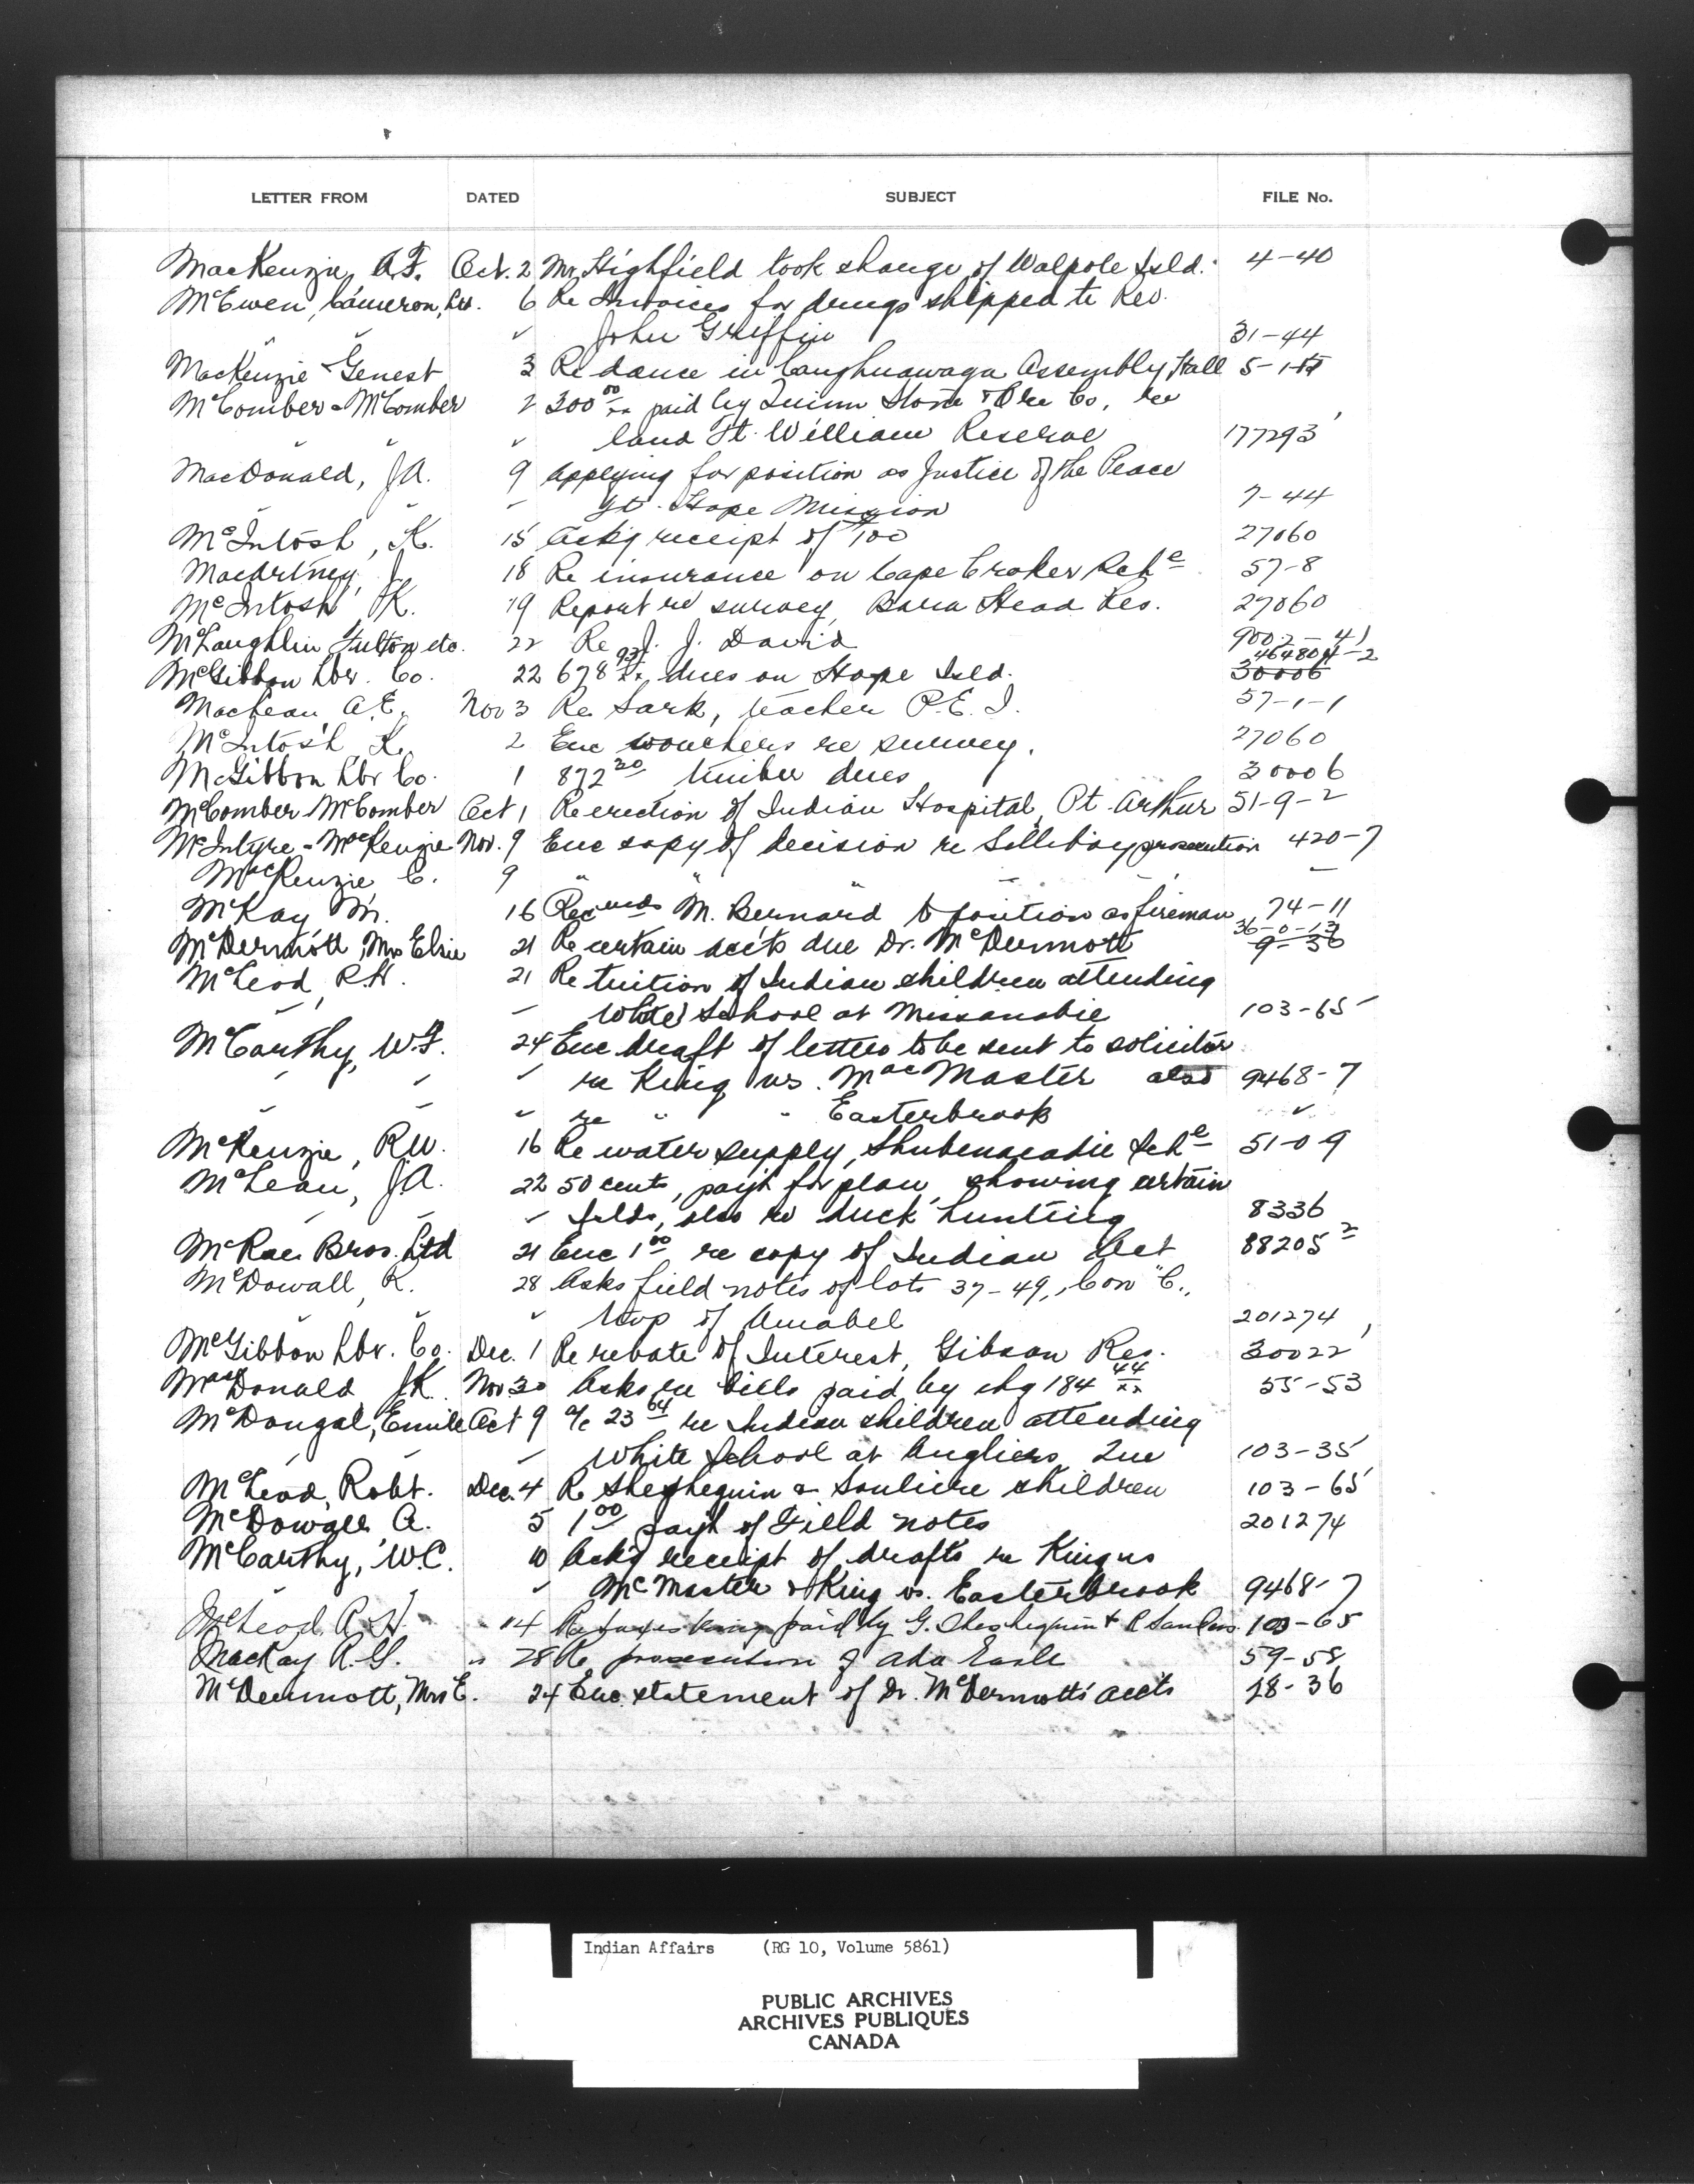 LETTER FROM DATED SUBJECT FILE No.
MacKenzie, A.F. Oct. 2 Mr Highfield took charge of Walpole Isld. 4-40
McEwen, Cameron, Ltd. 6 Re Invoices for drugs shipped to Rev.
" " John Griffin 31-44
MacKenzie - Genest 3 Re dance in Caughnawaga Assembly Hall 5-1
McComber - McComber 2 300 00/xx paid by Quinn Stone & Ore Co, re
" " " land Ft. William Reserve 177293
MacDonald, J.A. 9 Applying for position as Justice of the Peace
" " " Ft. Hope Mission 7-44
McIntosh, K. 15 Ackg receipt of 100 27060
Macartney, J. 18 Re insurance on Cape Croker Sch e 57-8
McIntosh K. 19 Report re survey, Bara Head Res. 27060
McLaughlin Fulton etc. 22 Re J. J. David 9002-41
McGibbon Lbr. Co. 22 678 93/xx dues on Hope Isld. 464804-2 30006
MacLean, A.E. Nov 3 Re Sark, teacher P.E.I. 57-1-1
McIntosh K. 2 Enc vouchers re survey. 27060
McGibbon Lbr Co. 1 872 20 timber dues 30006
McComber McComber Oct 1 Re erection of Indian Hospital, Pt. Arthur 51-9-2
McIntyre - MacKenzie Nov. 9 Enc copy of decision re prosecution 420-7
MacKenzie C. 9 " " " "
McKay M. 16 Recmds M. Bernard to position as fireman 74-11
McDermott, Mrs Elsie 21 Re certain accts due Dr. McDermott 36-0-13 9-36
McLeod, R.H. 21 Re tuition of Indian children attending
" " White School at Missanabie 103-65
McCarthy, W.F. 24 Enc draft of letters to be sent to solicitor
" " " re King vs. MacMaster also 9468-7
" " " re " " Easterbrook "
McKenzie, R.W. 16 Re water supply, Shubenacadie Sch e 51-0-9
McLean, J.A. 22 50 cents, payt for plan showing certain
" " " Islds, also re duck hunting 8336
McRae Bros. Ltd 21 Enc 1 00 re copy of Indian Act 88205 2
McDowall, R. 28 Asks field notes of lots 37-49, Con "C",
" " " twp of Amabel 201274
McGibbon Lbr. Co. Dec. 1 Re rebate of Interest, Gibson Res. 30022
MacDonald J.K. Nov 30 Asks re bills paid by chq 184 44/xx 55-53
McDougal, Emile Oct 9 a/c 23 64 re Indian children attending
" " " White School at Angliers, Que 103-35
McLeod, Robt. Dec. 4 Re Sheshequin & Souliere children 103-65
McDowall A. 5 1 00 payt of Field notes 201274
McCarthy, W.C. 10 Ackg receipt of drafts re King vs
" " " McMaster & King vs. Easterbrook 9468-7
McLeod, R.H. " 14 Re taxes being paid by G. Sheshequin & R 103-65
MacKay R.G. " 28 Re prosecution of Ada Earle 59-58
McDermott, Mrs E. 24 Enc. statement of Dr. McDermott's accts 18-36
Indian Affairs (RG 10, Volume 5861)
PUBLIC ARCHIVES
ARCHIVES PUBLIQUES
CANADA